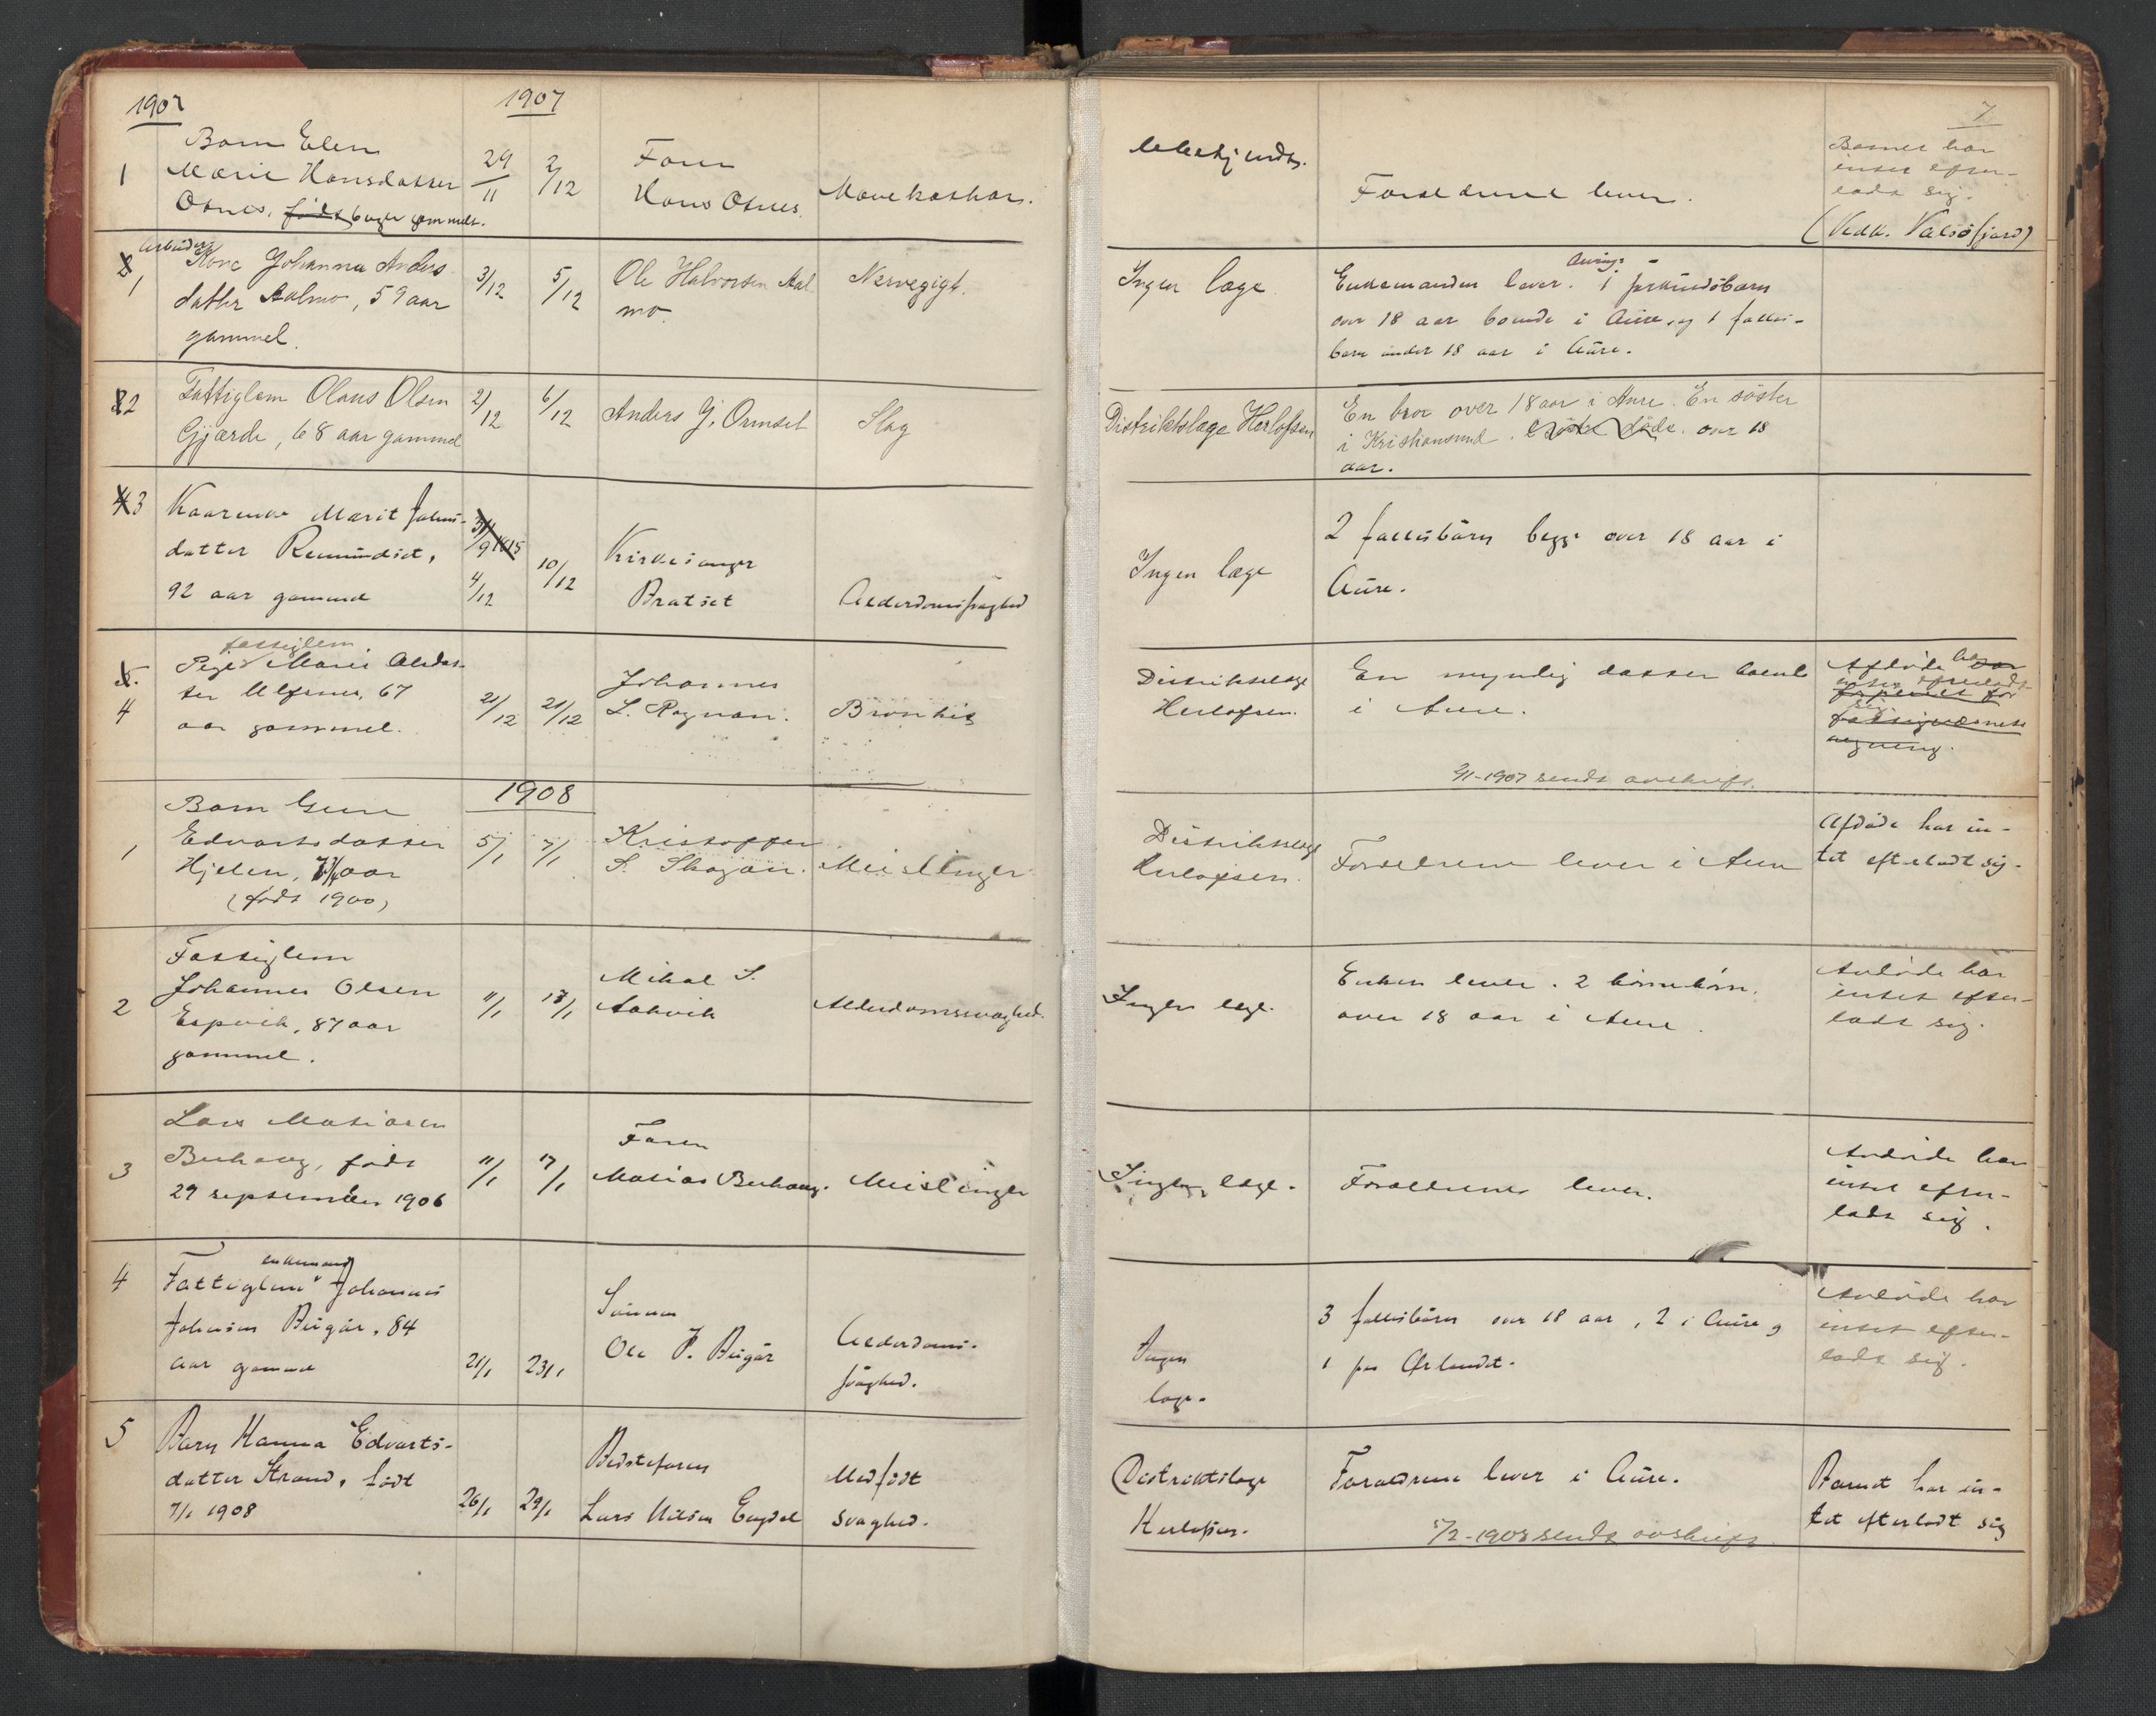 1907
1907
7
1
Barn Elen
Marie Hansdatter
Otnes, født 6 uger gammelt.
29/11
2/12
Faren
Hans Otnes
Mavekatharr.
Ubekjendt.
Forældrene lever.
Barnet har
intet efter-
ladt sig.
(Vedk. Valsøfjord)
1
Arbeider
Kone Johanna Anders
datter Aalmo, 59 aar
gammel.
3/12
5/12
Ole Halvorsen Aal
mo.
Nervegigt.
Ingen læge
Enkemanden lever. 1
over 18 aar boende i Aure, og 1 fælles-
barn under 18 aar i Aure.
2
Fattiglem Olaus Olsen
Gjærde, 68 aar gammel
2/12
6/12
Anders J. Ormset
Slag
Distriktslæge Herlofsen
En bror over 18 aar i Aure. En søster
i Kristiansund. over 18
aar.
3
Kaarenke Marit Johns-
datter Remmdset,
92 aar gammel
4/12
10/12
Kirkesanger
Bratset
Alderdomssvaghed
Ingen læge
2 fællesbørn begge over 18 aar i
Aure.
4
fattiglem
Pige Marie Olsdat-
ter Ulfsnes, 67
aar gammel.
21/12
21/12
Johannes
L. Rognan.
Bronkit
Distriktslæge
Herlofsen.
En myndig datter boende
i Aure.
Afdøde har
intet efterladt
sig
2/1-1907 sendt avskrift.
1908
1
Barn Gure
Edvartsdatter
Hjelen, 7 3/4 aar
(født 1900)
5/1
7/1
Kristoffer
S. Skogan.
Meslinger
Distriktslæge
Herlofsen.
Forældrene lever i Aure
Afdøde har in-
tet efterladt sig.
2
Fattiglem
Johannes Olsen
Espvik, 87 aar
gammel.
11/1
13/1
Mikal S.
Aakvik
Alderdomssvaghed.
Ingen læge.
Enken lever. 2 børnebørn
over 18 aar i Aure.
Avdøde har
intet efter-
ladt sig.
3
Lars Matiasen
Berhaug, født
29 september 1906
11/1
17/1
Faren
Matias Berhaug.
Meslinger
Ingen læge.
Forældrene lever.
Avdøde har
intet efter-
ladt sig.
4
enkemand
Fattiglem Johannes
Johnsen Bergår, 84
aar gammel
21/1
23/1
Sønnen
Ole J. Bergår
Alderdoms-
svaghed.
Ingen
læge.
3 fællesbørn over 18 aar, 2 i Aure og
1 paa Ørlandet.
Avdøde har
intet efter-
ladt sig.
5
Barn Hanna Edvarts-
datter Strand, født
7/1 1908
26/1
29/1
Bedstefaren
Lars Nilsen Engdal
Medfødt
svaghed.
Distriktslæge
Herlofsen.
Forældrene lever i Aure.
5/2-1908 sendt avskrift.
Barnet har in-
tet efterladt sig